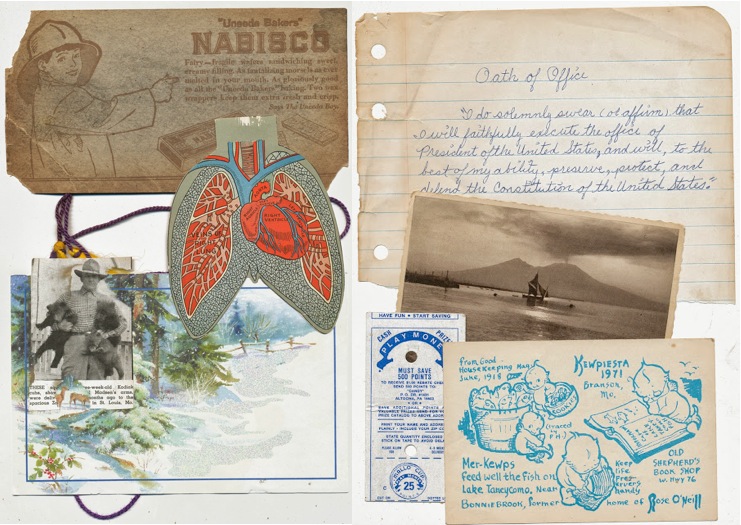 "Uneeda Bakers"
NABISCO
Fairy-fragile wafers sandwiching sweet,
creamy filling. As tantalizing morsels as ever
melted in your mouth. As gloriously good
as all the "Uneeda Bakers" baking. Two tan
wrappers keep them extra fresh and crisp.
Says The Uneeda Boy.
RIGHT
LUNG
THESE
-week-old Kodiak
cubs,
Madsen's arms,
were
months ago to the
spacious
in St. Louis, Mo.
Oath of Office
"I do solemnly swear (or affirm) that
I will faithfully execute the office of
President of the United States, and will, to the
best of my ability, preserve, protect, and
defend the Constitution of the United States."
HAVE FUN • START SAVING
CASH
PRIZES
PLAY MONE
MUST SAVE
500 POINTS
ALTOONA, PA 16603
PRINT YOUR NAME AND ADDRESS
STATE QUANTITY ENCLOSED
STICK ON TAPE TO AVOID
25
From Good
Housekeeping Mag.
June, 1918
KEWPIESTA
1971
Branson,
Mo.
(traced
P.H.)
Mer-Kewps
Feed well the fish on
Lake Taneycomo, Near
BONNIEBROOK, former home of Rose O'Neill
Keep
life
Pres-
ervers
handy
OLD
SHEPHERD'S
BOOK SHOP
W. Hyy 76